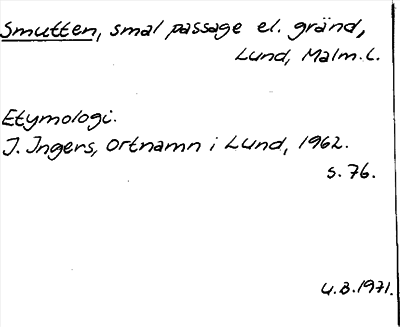 Smutten, smal passage el. gränd,
Lund, Malm.l.
Etymologi.
J. Ingers, Ortnamn i Lund, 1962.
s. 76.
U.B.1971.